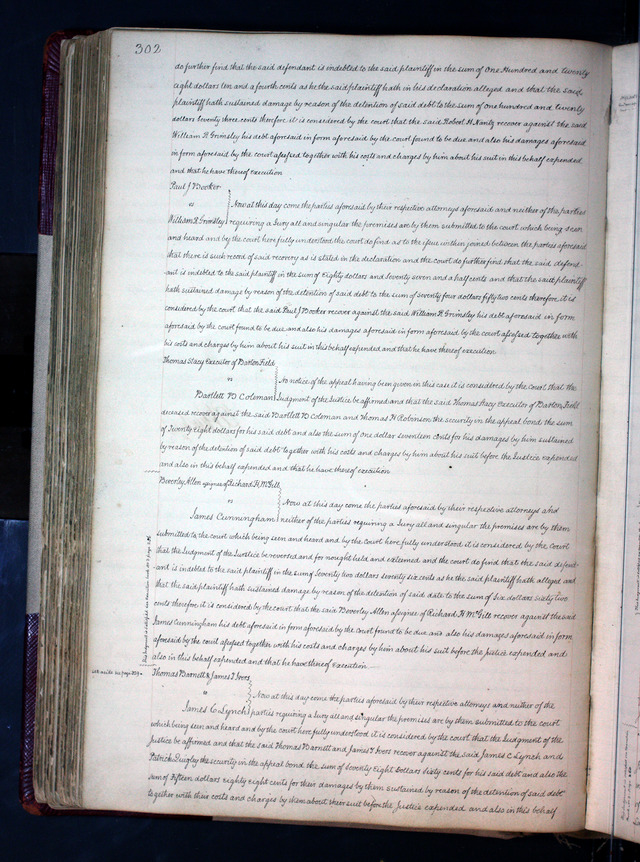 302
do further find that the said defendant is indebted to the said plaintiff in the sum of One Hundred and twenty
eight dollars ten and a fourth cents as he the said plaintiff hath in his declaration alleged and that the said
plaintiff hath sustained damage by reason of the detention of said debt to the sum of one hundred and twenty
dollars seventy three cents therefore it is considered by the court that the said Robert H. recover against the said
William R. Grimsley his debt aforesaid in form aforesaid by the court found to be due and also his damages aforesaid
in form aforesaid by the court assessed together with his costs and charges by him about his suit in this behalf expended
and that he have thereof execution
Paul J Booker
vs
Now at this day come the parties aforesaid by their respective attorneys aforesaid and neither of the parties
William R. Grimsley requiring a Jury all and singular the premises are by them submitted to the court which being seen
and heard and by the court here fully understood the court do find as to the issue within joined between the parties aforesaid
that there is such record of said recovery as is stated in the declaration and the court do further find that the said defend-
ant is indebted to the said plaintiff in the sum of Eighty dollars and Seventy seven and a half cents and that the said plaintiff
hath sustained damage by reason of the detention of said debt to the sum of seventy four dollars fifty two cents therefore it is
considered by the court that the said Paul J Booker recover against the said William R. Grimsley his debt aforesaid in form
aforesaid by the court found to be due and also his damages aforesaid in form aforesaid by the court assessed together with
his costs and charges by him about his suit in this behalf expended and that he have thereof execution
Thomas Stacy Executor of Barton Field
vs
No notice of the appeal having been given in this case it is considered by the Court that the
Bartlett D Coleman Judgment of the Justice be affirmed and that the said Thomas Stacy Executor of Barton Field
deceased recover against the said Bartlett D Coleman and Thomas H Robinson the security in the appeal bond the sum
of Twenty eight dollars for his said debt and also the sum of one dollar seventeen cents for his damages by him sustained
by reason of the detention of said debt together with his costs and charges by him about his suit before the Justice expended
and also in this behalf expended and that he have thereof execution
Beverley Allen assignee of Richard H. McGill
vs
Now at this day come the parties aforesaid by their respective attorneys and
James Cunningham neither of the parties requiring a Jury all and singular the premises are by them
submitted to the court which being seen and heard and by the court here fully understood it is considered by the Court
that the Judgment of the Justice be reversed and for nought held and esteemed and the court do find that the said defend-
ant is indebted to the said plaintiff in the sum of Seventy two dollars seventy six cents as he the said plaintiff hath alleged and
that the said plaintiff hath sustained damage by reason of the detention of said debt to the sum of six dollars sixty two
cents therefore it is considered by the court that the said Beverley Allen assignee of Richard H McGill recover against the said
James Cunningham his debt aforesaid in form aforesaid by the court found to be due and also his damages aforesaid in form
aforesaid by the court assessed together with his costs and charges by him about his suit before the Justice expended and
also in this behalf expended and that he have thereof execution
Thomas Barnett & James T Ivers
vs
Now at this day come the parties aforesaid by their respective attorneys and neither of the
James C Lynch parties requiring a Jury all and singular the premises are by them submitted to the court
which being seen and heard and by the court here fully understood it is considered by the court that the Judgment of the
Justice be affirmed and that the said Thomas Barnett and James T Ivers recover against the said James C Lynch and
Patrick Quigley the security in the appeal bond the sum of Seventy Eight Dollars Sixty cents for his said debt and also the
sum of Fifteen dollars eighty eight cents for their damages by them sustained by reason of the detention of said debt
together with their costs and charges by them about their suit before the Justice expended and also in this behalf